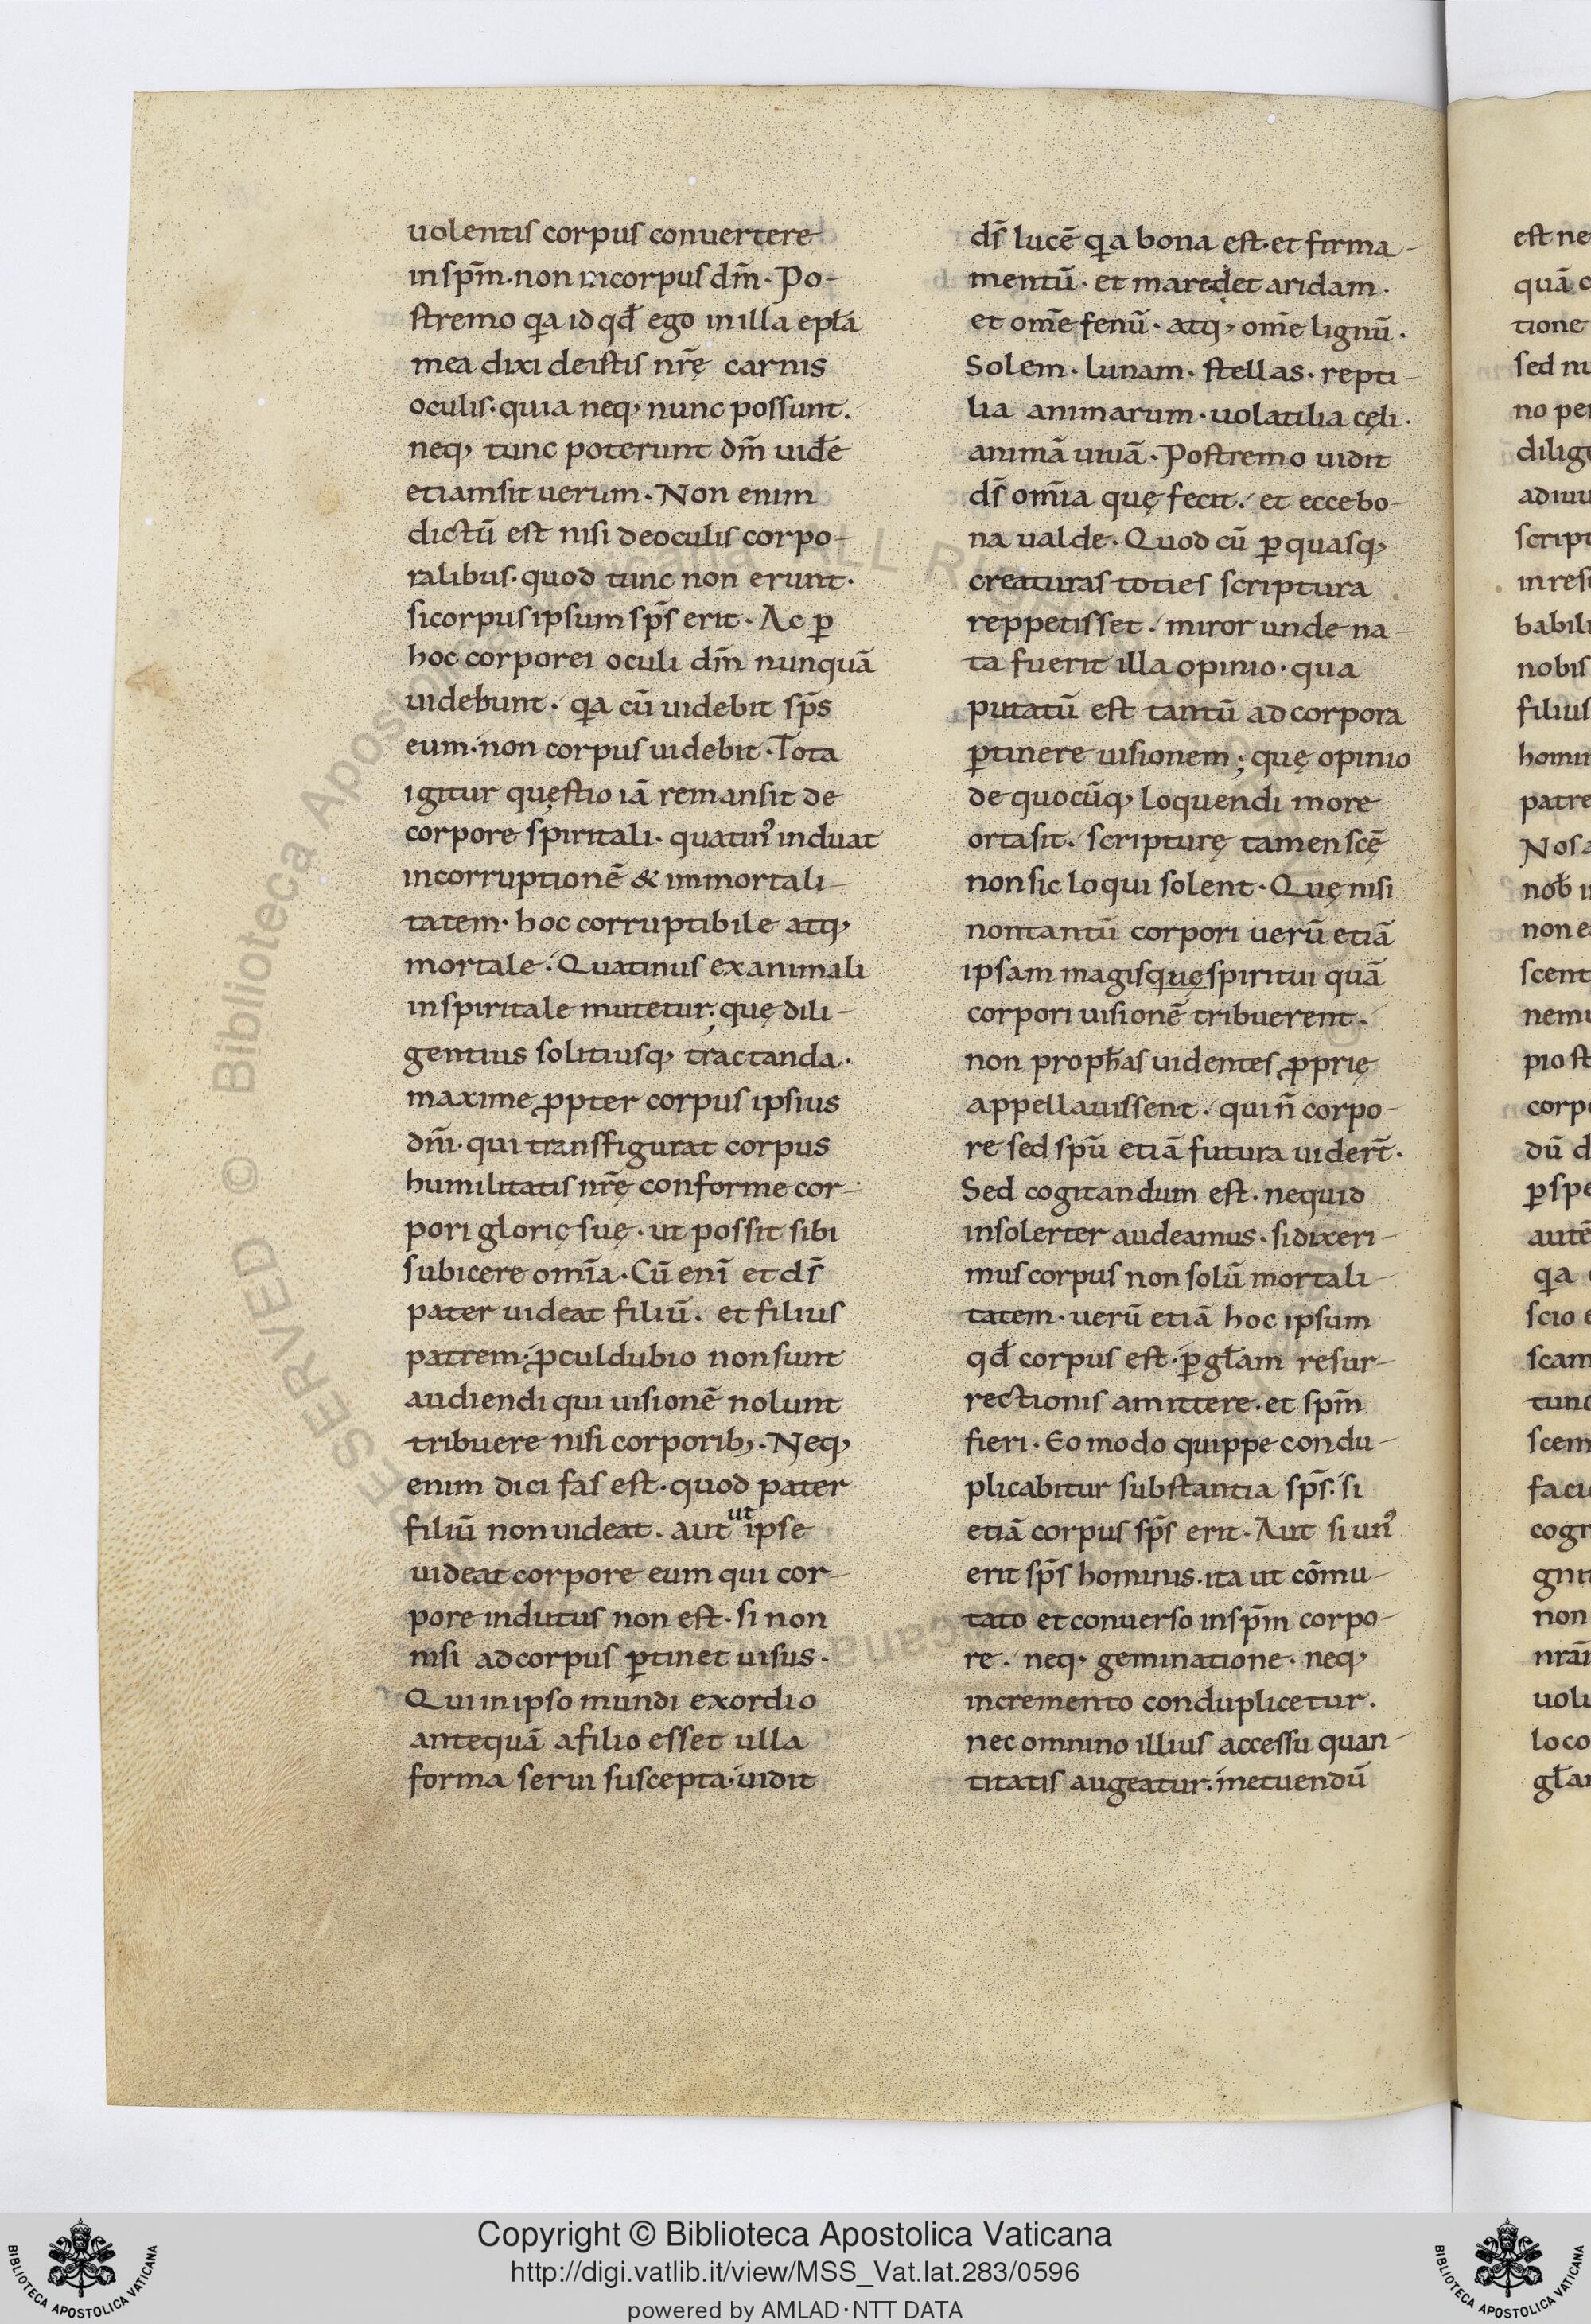 uolentis corpus conuertere
in sp̄m. non in corpus dm̄. Po-
stremo qa id qđ ego in illa epła
mea dixi de istis nr̄ę carnis
oculis. quia neq, nunc possunt.
neq, tunc poterunt dm̄ uidē
etiam sit uerum. Non enim
dictū est nisi de oculis corpo-
ralibus. quod tunc non erunt.
si corpus ipsum sp̄s erit. Ac ꝑ
hoc corporei oculi dm̄ nunquā
uidebunt. qa cū uidebit sp̄s
eum. non corpus uidebit. Tota
igitur quęstio iā remansit de
corpore spiritali. quatin⁹ induat
incorruptionē & inmortali-
tatem. hoc corruptibile atq,
mortale. Quatinus ex animali
in spiritale mutetur; quę dili-
gentius solitiusq, tractanda.
maxime ꝓpter corpus ipsius
dm̄i. qui transfigurat corpus
humilitatis nr̄ę conforme cor-
pori glorię suę. ut possit sibi
subicere om̄ia. Cū enī et ds̄
pater uideat filiū. et filius
patrem. ꝓcul dubio non sunt
audiendi qui uisionē nolunt
tribuere nisi corporib;. Neq,
enim dici fas est. quod pater
filiū non uideat. aut ut ipse
uideat corpore eum qui cor-
pore indutus non est. si non
nisi ad corpus ꝑtinet uisus.
Qui in ipso mundi exordio
antequā a filio esset ulla
forma serui suscepta. uidit
ds̄ lucē qa bona est. et firma-
mentū. et mare det aridam.
et om̄e fenū. atq, om̄e lignū.
Solem. lunam. stellas. repti-
lia animarum. uolatilia cęli.
animā uiuā. Postremo uidit
ds̄ om̄ia quę fecit. et ecce bo-
na ualde. Quod cū ꝑ quasq,
creaturas toties scriptura
reppetisset. miror unde na-
ta fuerit illa opinio. qua
putatū est tantū ad corpora
ꝑtinere uisionem; quę opinio
de quocūq, loquendi more
orta sit. scripturę tamen scę̄
non sic loqui solent. Quę nisi
non tantū corpori uerū etiā
ipsam magisquę spiritui quā
corpori uisionē tribuerent.
non proph̄as uidentes ꝓprię
appellauissent. qui n̄ corpo-
re sed spū etiā futura uidert̄.
Sed cogitandum est. ne quid
insolerter audeamus. si dixeri-
mus corpus non solū mortali-
tatem. uerū etiā hoc ipsum
qđ corpus est. ꝑ gł̄am resur-
rectionis amittere. et sp̄m
fieri. Eo modo quippe condu-
plicabitur substantia sp̄s. si
etiā corpus sp̄s erit. Aut si un⁹
erit sp̄s hominis. ita ut cōmu-
tato et conuerso in sp̄m corpo-
re. neq, geminatione. neq,
incremento conduplicetur.
nec omnino illius accessu quan-
titatis augeatur. metuendū
est ne
quā c
tione
sed nu
no per
dilige
adiuu
script
in resu
babili
nobis
filius
homin
patre
Nos a
nob̄ i
non e
scent
nemu
pio st
corpo
dū d
ꝑ spe
autē
qa
scio e
scam
tunc
scem
faci
cogn
gnit
non
nrā
uolu
loco
gł̄a
Copyright © Biblioteca Apostolica Vaticana
http://digi.vatlib.it/view/MSS_Vat.lat.283/0596
powered by AMLAD·NTT DATA
BIBLIOTECA APOSTOLICA VATICANA
BIBLIOTECA APOSTOLICA VATICANA